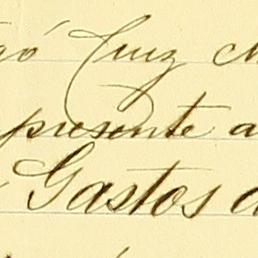 gó Cruz
presente a
Gastos d